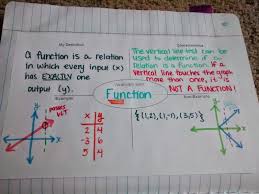 My Definition
A function is a relation
in which every input (x)
has EXACTLY one
output (y).
Characteristics
The vertical line test can be
used to determine if a
relation is a function. If a
vertical line touches the graph
more than once, it is
NOT A FUNCTION!
Function
Example
passes
VLT
x y
2 4
3 -6
5 4
Non-Example